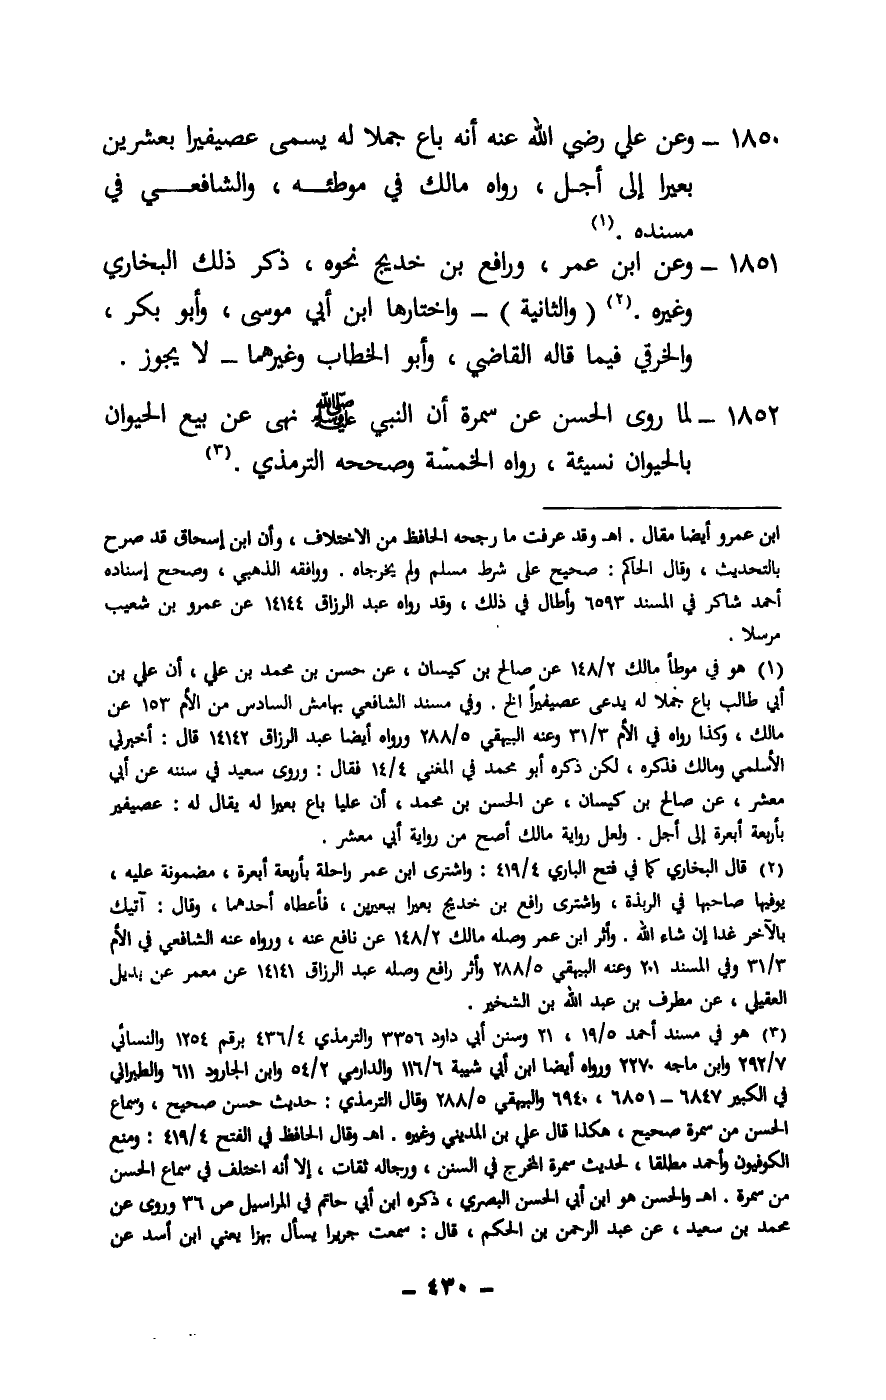 ١٨٥٠ ــ وعن علي رضي الله عنه أنه باع جملا له يسمى عصيفيرا بعشرين
بعيرا إلى أجـل ، رواه مالك في موطئـــه ، والشافعـــي في
مسنده .(١)
١٨٥١ ــ وعن ابن عمر ، ورافع بن خديج نحوه ، ذكر ذلك البخاري
وغيره .(٢) ( والثانية ) ــ واختارها ابن أبي موسى ، وأبو بكر ،
والخرقي فيما قاله القاضي ، وأبو الخطاب وغيرهما ــ لا يجوز .
١٨٥٢ ــ لما روى الحسن عن سمرة أن النبي ﷺ نهى عن بيع الحيوان
بالحيوان نسيئة ، رواه الخمسة وصححه الترمذي .(٣)
ابن عمرو أيضا مقال . اهـ وقد عرفت ما رجحه الحافظ من الاختلاف ، وأن ابن إسحاق قد صرح
بالتحديث ، وقال الحاكم : صحيح على شرط مسلم ولم يخرجاه . ووافقه الذهبي ، وصحح إسناده
أحمد شاكر في المسند ٦٥٩٣ وأطال في ذلك ، وقد رواه عبد الرزاق ١٤١٤٤ عن عمرو بن شعيب
مرسلا .
(١) هو في موطأ مالك ١٤٨/٢ عن صالح بن كيسان ، عن حسن بن محمد بن علي ، أن علي بن
أبي طالب باع جملا له يدعى عصيفيراً الخ . وفي مسند الشافعي بهامش السادس من الأم ١٥٣ عن
مالك ، وكذا رواه في الأم ٣١/٣ وعنه البيهقي ٢٨٨/٥ ورواه أيضا عبد الرزاق ١٤١٤٢ قال : أخبرني
الأسلمي ومالك فذكره ، لكن ذكره أبو محمد في المغني ١٤/٤ فقال : وروى سعيد في سننه عن أبي
معشر ، عن صالح بن كيسان ، عن الحسن بن محمد ، أن عليا باع بعيرا له يقال له : عصيفير
بأربعة أبعرة إلى أجل . ولعل رواية مالك أصح من رواية أبي معشر .
(٢) قال البخاري كما في فتح الباري ٤١٩/٤ : واشترى ابن عمر راحلة بأربعة أبعرة ، مضمونة عليه ،
يوفيها صاحبها في الربذة ، واشترى رافع بن خديج بعيرا ببعيرين ، فأعطاه أحدهما ، وقال : آتيك
بالآخر غدا إن شاء الله . وأثر ابن عمر وصله مالك ١٤٨/٢ عن نافع عنه ، ورواه عنه الشافعي في الأم
٣١/٣ وفي المسند ٢٠١ وعنه البيهقي ٢٨٨/٥ وأثر رافع وصله عبد الرزاق ١٤١٤١ عن معمر عن بديل
العقيلي ، عن مطرف بن عبد الله بن الشخير .
(٣) هو في مسند أحمد ١٩/٥ ، ٢١ وسنن أبي داود ٣٣٥٦ والترمذي ٤٣٦/٤ برقم ١٢٥٤ والنسائي
٢٩٢/٧ وابن ماجه ٢٢٧٠ ورواه أيضا ابن أبي شيبة ١١٦/٦ والدارمي ٥٤/٢ وابن الجارود ٦١١ والطبراني
في الكبير ٦٨٤٧ ــ ٦٨٥١ ، ٦٩٤٠ والبيهقي ٢٨٨/٥ وقال الترمذي : حديث حسن صحيح ، وسماع
الحسن من سمرة صحيح ، هكذا قال علي بن المديني وغيره . اهـ وقال الحافظ في الفتح ٤١٩/٤ : ومنع
الكوفيون وأحمد مطلقا ، لحديث سمرة المخرج في السنن ، ورجاله ثقات ، إلا أنه اختلف في سماع الحسن
من سمرة . اهـ والحسن هو ابن أبي الحسن البصري ، ذكره ابن أبي حاتم في المراسيل ص ٣٦ وروى عن
محمد بن سعيد ، عن عبد الرحمن بن الحكم ، قال : سمعت جريرا يسأل بهزا يعني ابن أسد عن
ــ ٤٣٠ ــ